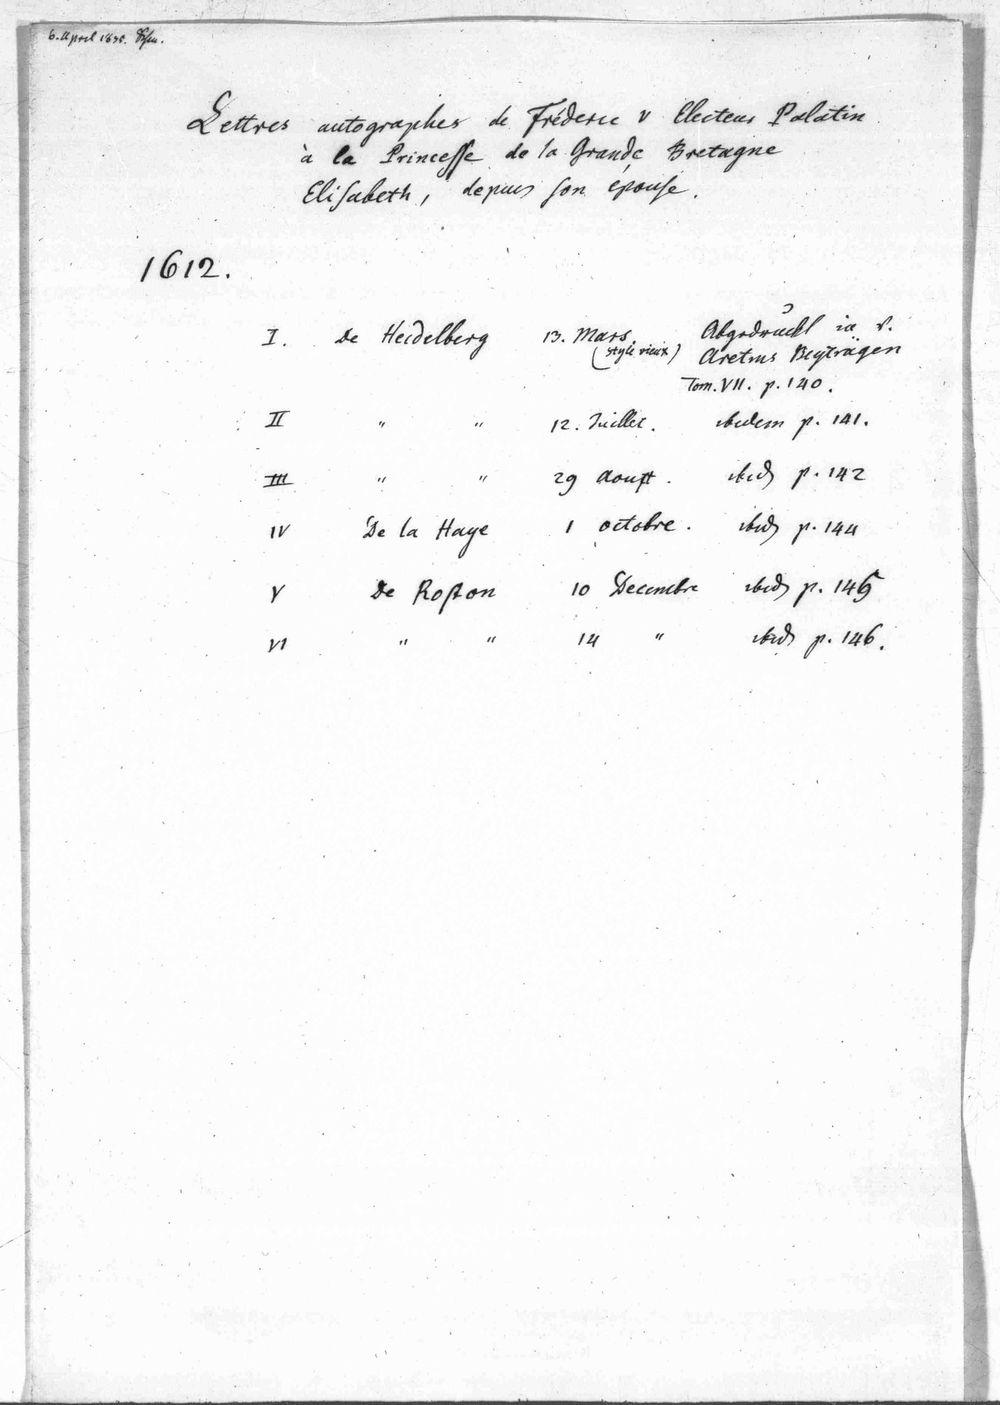 6. April 18
Lettres autographes de Fréderic V Electeur Palatin
à la Princesse de la Grande Bretagne
Elisabeth, depuis son épouse.
1612.
I. de Heidelberg 13. Mars. Abgedruckt in v.
(style vieux) Aretins Beyträgen
Tom. VII. p. 140.
II " " 12. Juillet. ibidem p. 141.
III " " 29 Aoust. ibid p. 142
IV De la Haye 1 octobre. ibid p. 144
V De Roston 10 Decembre ibid p. 145
VI " " 14 " ibid p. 146.